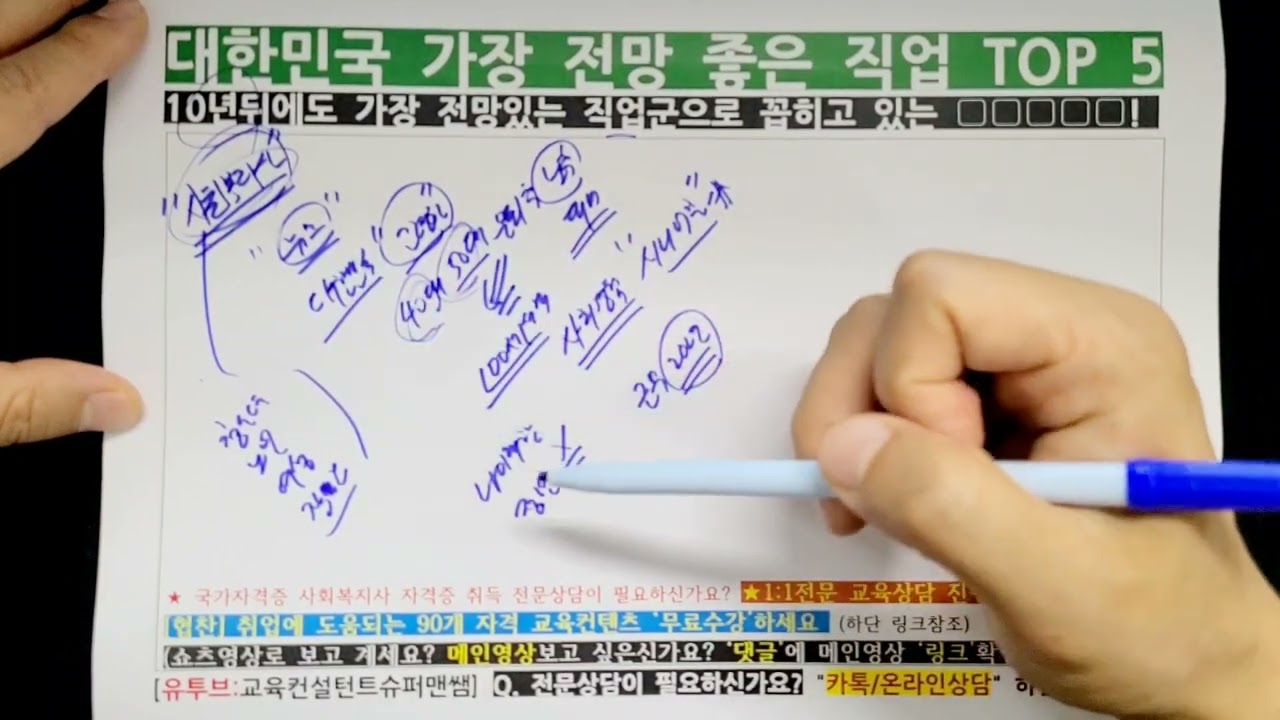 대한민국 가장 전망 좋은 직업 TOP 5
10년뒤에도 가장 전망있는 직업군으로 꼽히고 있는 □□□□□!
"뉴스"
40대 50대 은퇴 후
100세시대
사회경험
"시니어
근무
나이제한 X
정년
청소년
노인
여성
장애인
★ 국가자격증 사회복지사 자격증 취득 전문상담이 필요하신가요? ★1:1전문 교육상담 진
[협찬] 취업에 도움되는 90개 자격 교육컨텐츠 '무료수강'하세요 (하단 링크참조)
(쇼츠영상로 보고 계세요? 메인영상보고 싶은신가요? '댓글'에 메인영상 '링크'확
[유투브:교육컨설턴트슈퍼맨쌤] Q. 전문상담이 필요하신가요? "카톡/온라인상담" 하